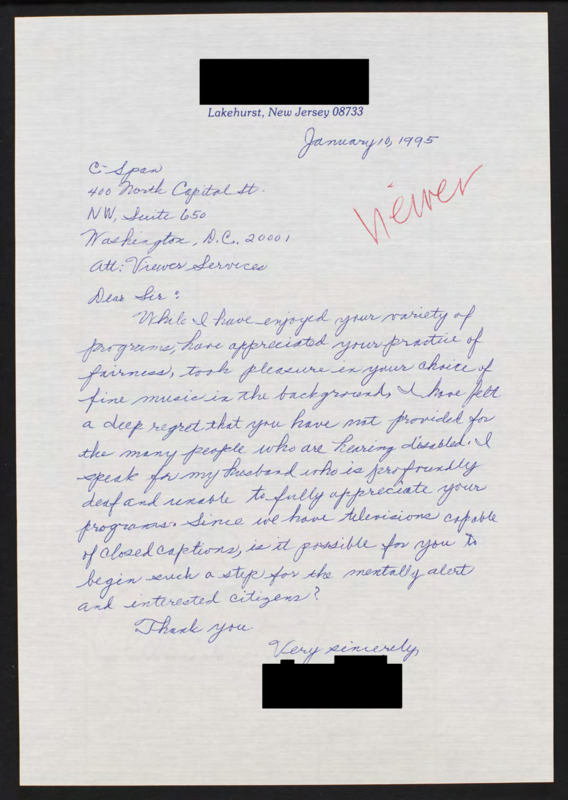 Lakehurst, New Jersey 08733
January 10, 1995
C-Span
400 North Capital St.
NW, Suite 650
Washington, D.C. 20001
Att: Viewer Services
viewer
Dear Sir:
While I have enjoyed your variety of
programs, have appreciated your practice of
fairness, took pleasure in your choice of
fine music in the background, I have felt
a deep regret that you have not provided for
the many people who are hearing disabled. I
speak for my husband who is profoundly
deaf and unable to fully appreciate your
programs. Since we have televisions capable
of closed captions, is it possible for you to
begin such a step for the mentally alert
and interested citizens?
Thank you
Very sincerely,